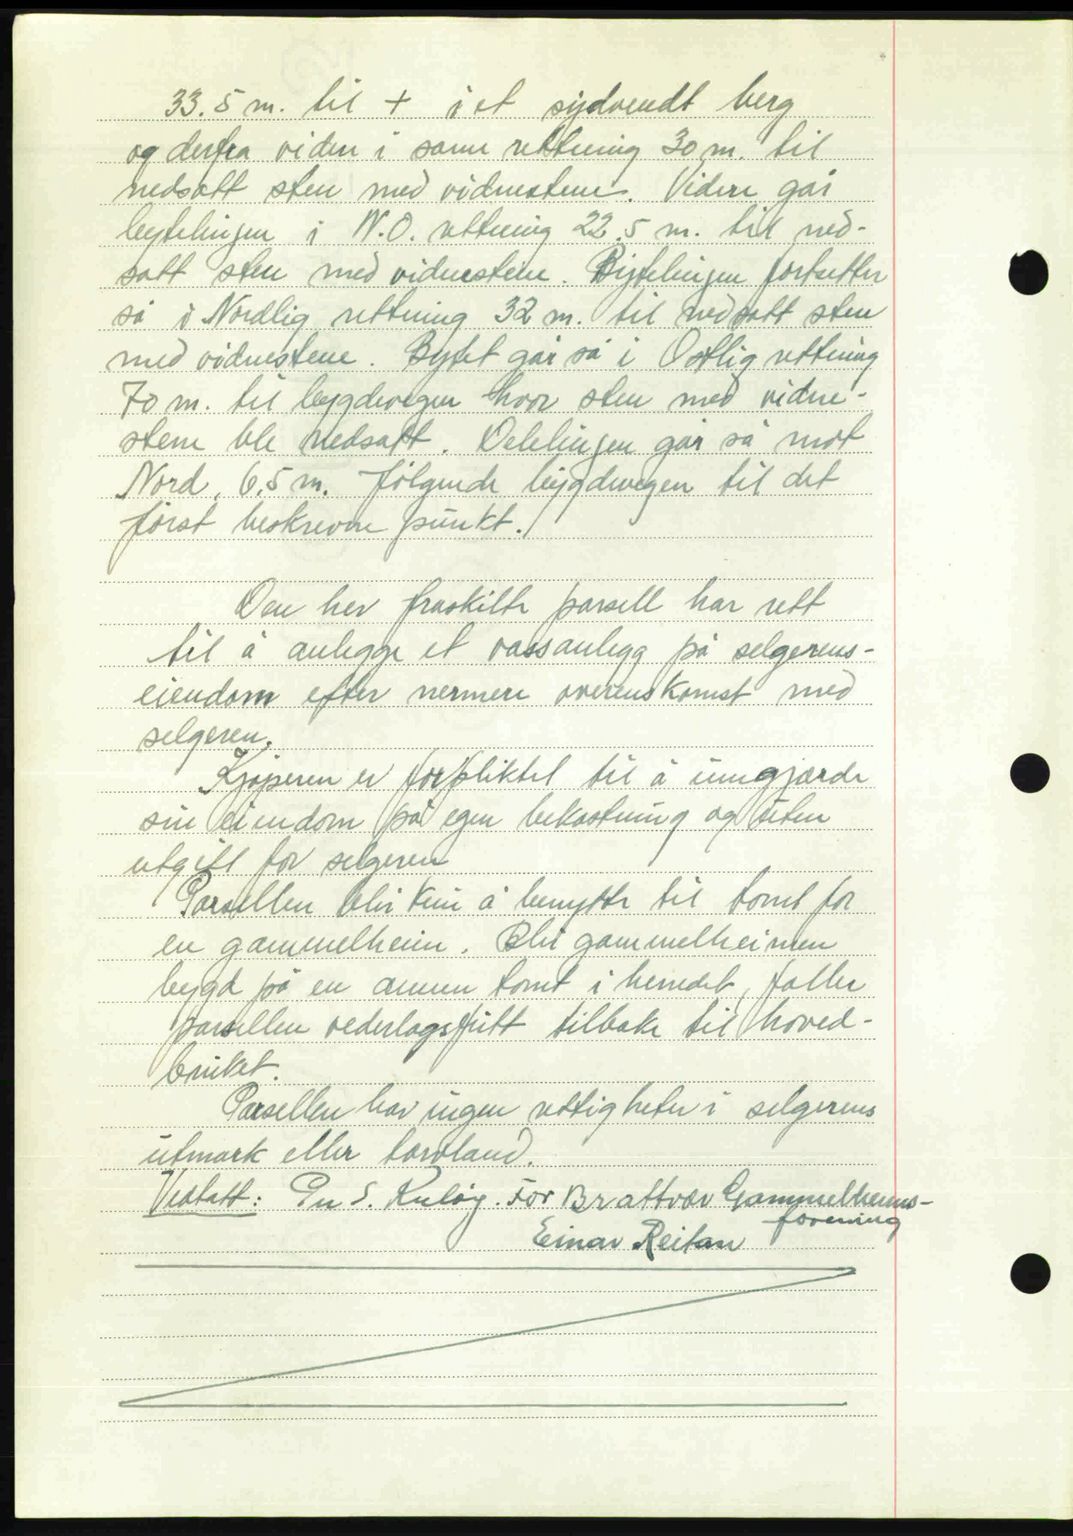 33.5 m. til + i et sydvendt berg
og derfra vider i samme rettning 30 m. til
nedsatt sten med vidnestene. Videre går
bytelinjen i N.O. rettning 22.5 m. til ned-
satt sten med vidnestene. Bytelinjen fortsetter
så i Nordlig rettning 32 m. til nedsatt sten
med vidnestene. Bytet går så i Ostlig rettning
70 m. til bygdevegen hvor sten med vidne-
stene ble nedsatt. Delelinjen går så mot
Nord, 6.5 m. følgende bygdevegen til det
først beskrevne punkt.
Den her fraskilte parsell har rett
til å anlegge et vassanlegg på selgerens-
eiendom efter nermere overenskomst med
selgeren.
Kjøperen er forpliktet til å inngjærde
sin eiendom på egen bekostning og uten
utgift for selgeren
Parsellen blir kun å benytte til tomt for
en gammelheim. Blir gammelheimen
bygd på en annen tomt i herredet, faller
parsellen vederlagsfritt tilbake til hoved-
bruket.
Parsellen har ingen rettigheter i selgerens
utmark eller torvland.
Vedtatt: S. Kuløy. For Brattvær Gammelheims-
forening
Einar Reitan